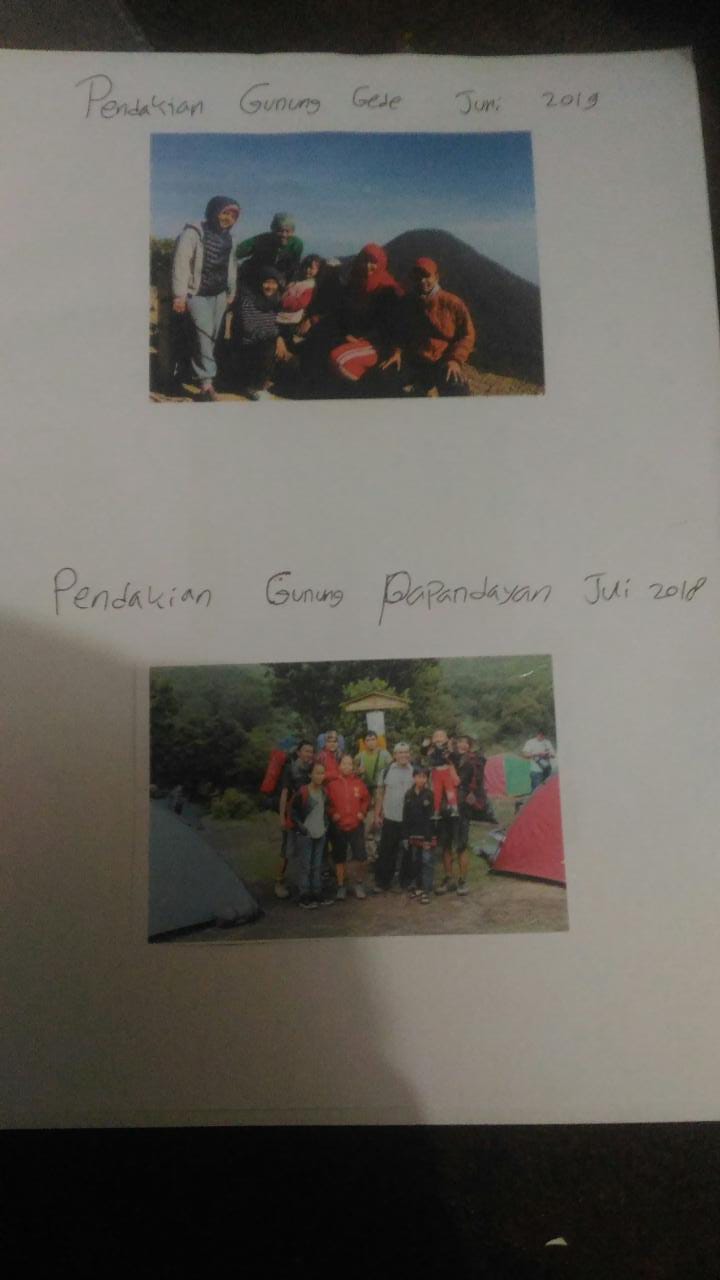 Pendakian Gunung Gede Juni 2019
Pendakian Gunung Papandayan Juli 2018